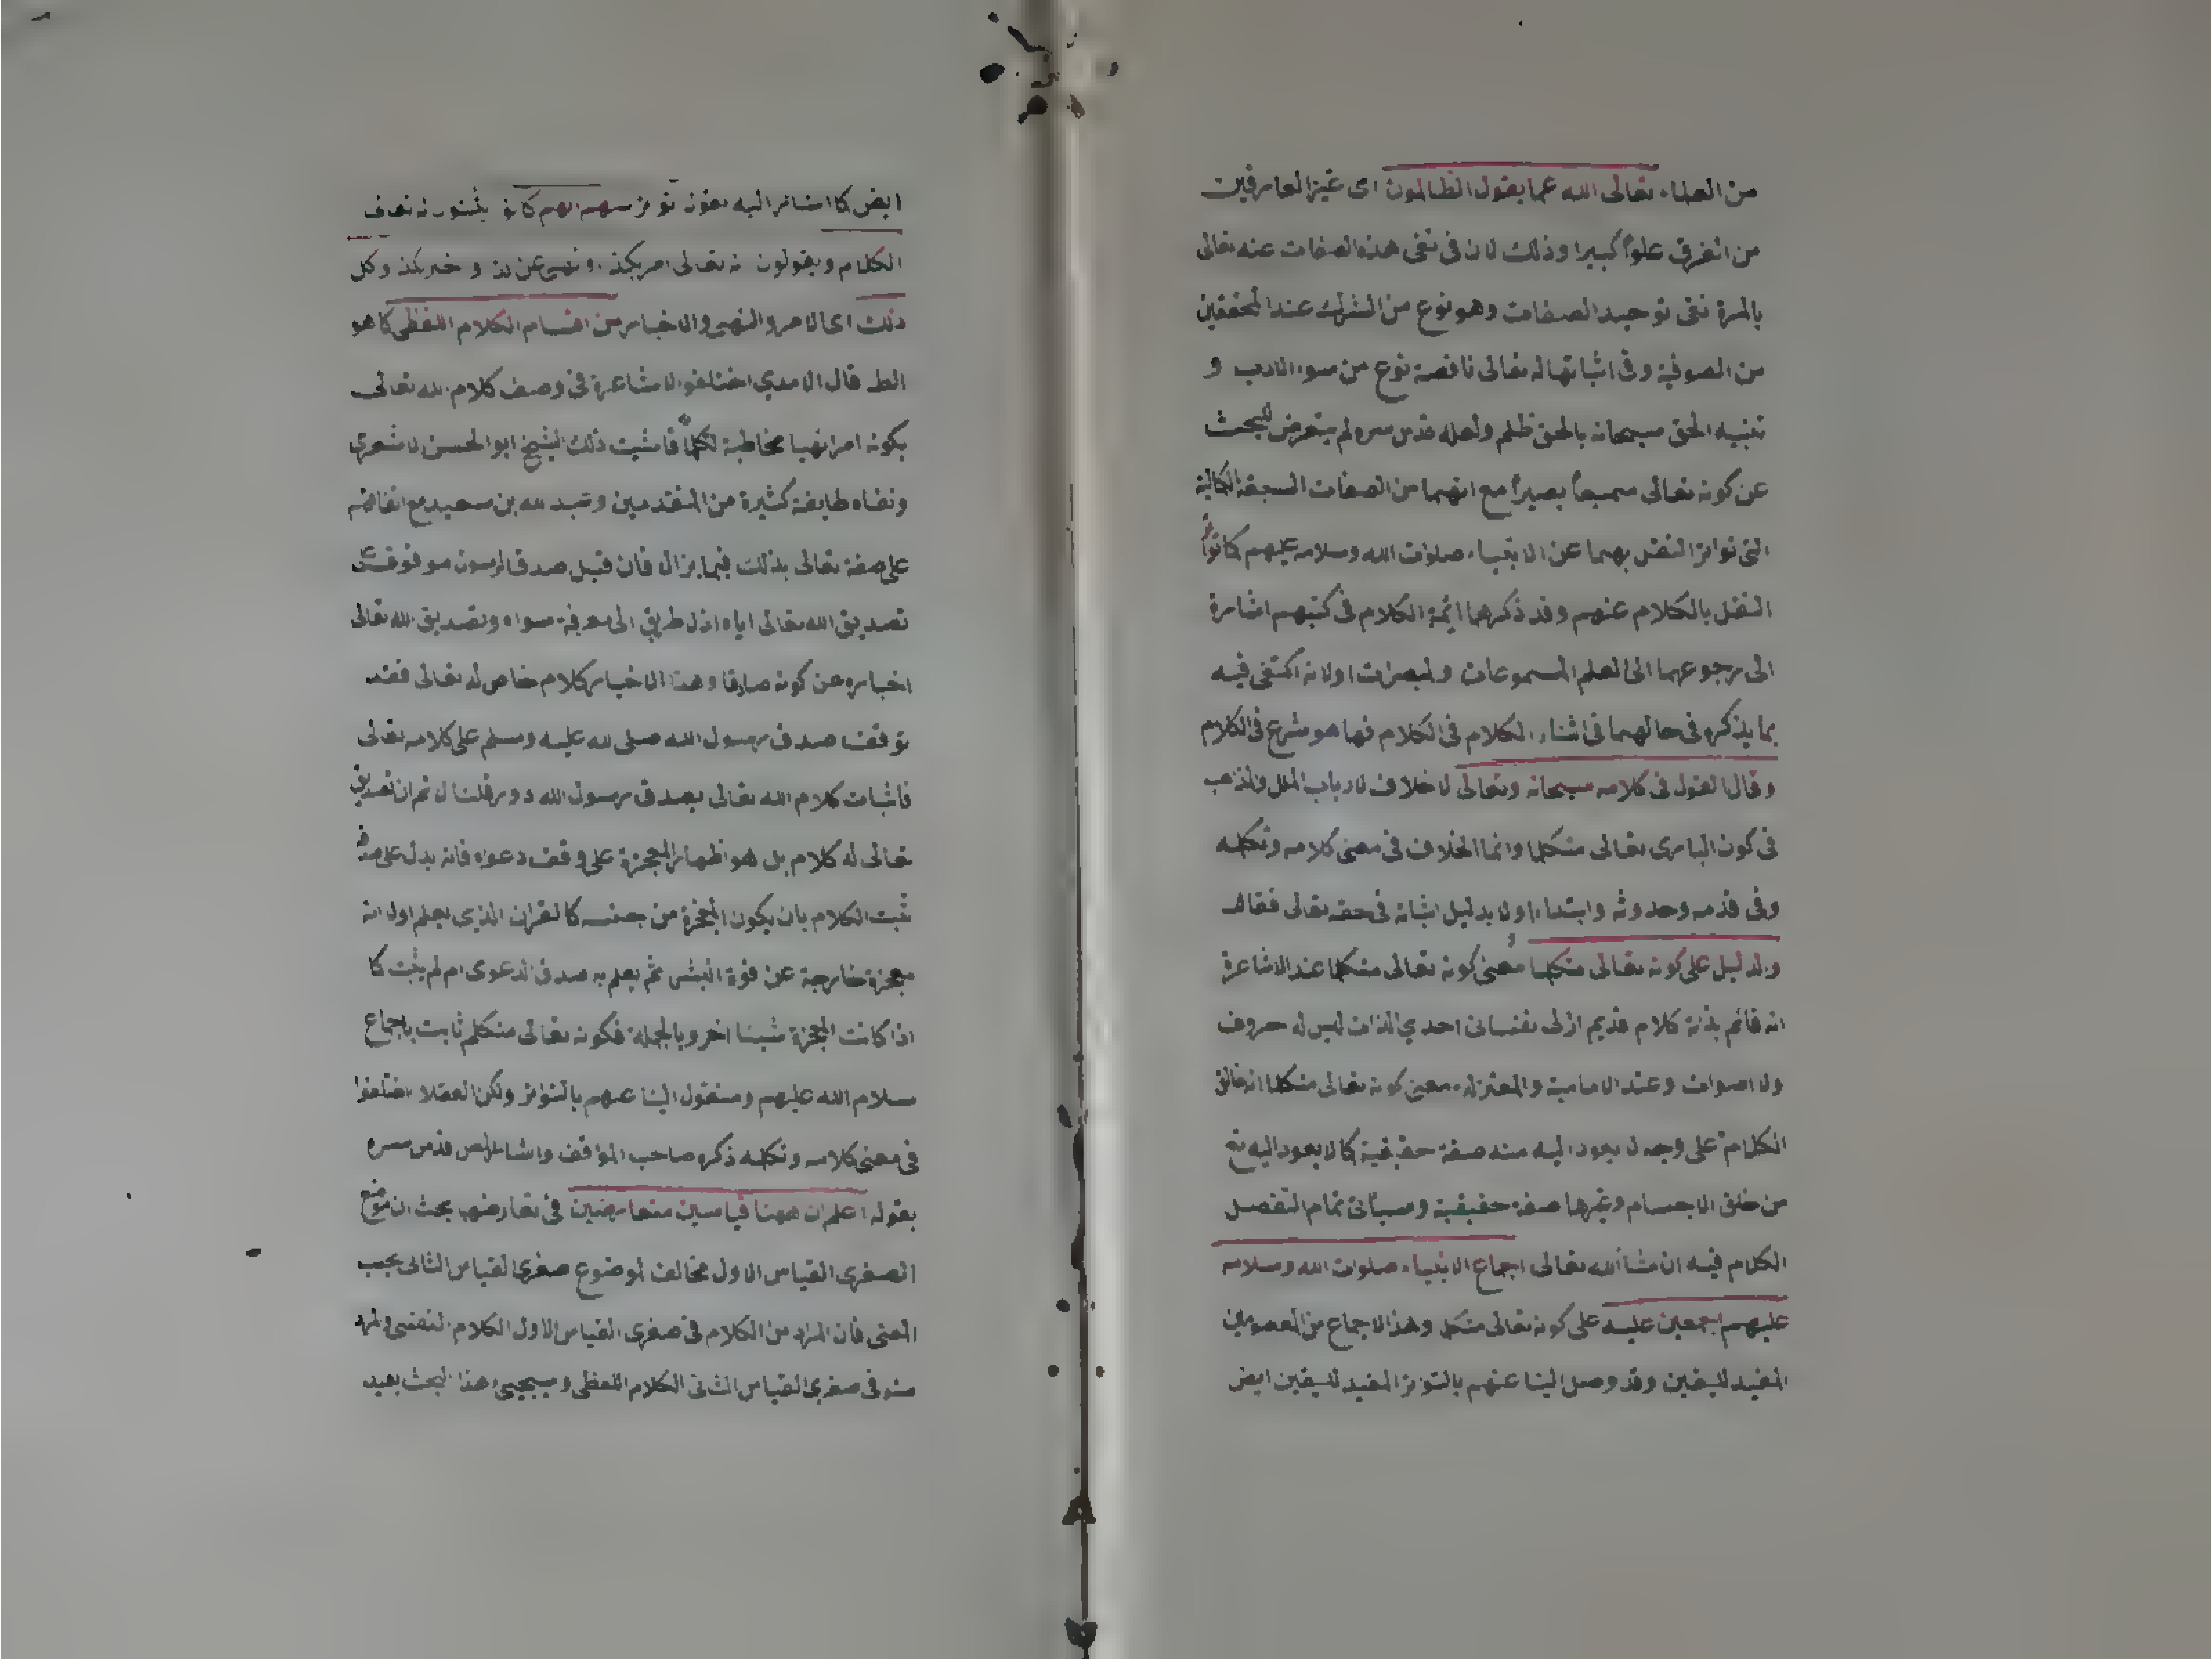 من العلماء تعالى الله عما يقول الظالمون اى غير العارفين
من الفرق علواً كبيرا وذلك لان فى نفى هذه الصفات عنه تعالى
بالمرة نفى توحيد الصفات وهو نوع من الشرك عند المحققين
من الصوفية وفى اثباتها له تعالى ناقصة نوع من سوء الادب و
تنبيه الحق سبحانه بالحق ظلم ولعله قدس سره لم يتعرض للبحث
عن كونه تعالى سميعاً بصيراً مع انهما من الصفات السبعة الكمالية
التى تواتر النقل بهما عن الانبياء صلوات الله وسلامه عليهم كما تواتر
النقل بالكلام عنهم وقد ذكرهما ائمة الكلام فى كتبهم اشارة
الى رجوعهما الى العلم المسموعات والمبصرات اولانه اكتفى فيه
بما يذكره فى حالهما فى اثناء الكلام فى الكلام فها هو شرع فى الكلام
وقال القول فى كلامه سبحانه وتعالى لا خلاف لارباب الملل والمذهب
فى كون البارى تعالى متكلما وانما الخلاف فى معنى كلامه وتكلمه
وفى قدمه وحدوثه وابتداء اولا بدليل اثباته فى حقه تعالى فقال
والدليل على كونه تعالى متكلما معنى كونه تعالى متكلما عند الاشاعرة
انه قائم بذاته كلام قديم ازلى نفسانى احدي الذات ليس له حروف
ولا اصوات وعند الامامية والمعتزله معنى كونه تعالى متكلما انه خالق
الكلام على وجه لا يعود اليه منه صفة حقيقية كما لا يعود اليه تع
من خلق الاجسام وغيرها صفة حقيقية وسيأتى تمام التفصيل
الكلام فيه ان شاالله تعالى اجماع الانبياء صلوات الله وسلامه
عليهم اجمعين عليه على كونه تعالى متكلم وهذا الاجماع من المعصومين
المفيد لليقين وقد وصل الينا عنهم بالتواتر المفيد لليقين ايض
ايض كما اشار اليه بقوله تواتر انهم كانوا يثبتون له تعالى
الكلام ويقولون انه تعالى امر بكذا ونهى عن كذا و خبر بكذا وكل
ذلك اى الامر والنهى والاخبار من اقسام الكلام اللفظى كما هو
الظ قال الامدي اختلفوا الاشاعرة فى وصف كلام الله تعالى
بكونه امرا نهيا مخاطبة فاثبت ذلك الشيخ ابو الحسن الاشعري
ونفاه طايفة كثيرة من المتقدمين وعبد الله بن سعيد مع اتفاقهم
على صفة تعالى بذلك فيما يزال فان قيل صدق الرسول موقوف على
تصديق الله تعالى اياه اذ لا طريق الى معرفته سواه وتصديق الله تعالى
اخباره عن كونه صادقا وهذا الاخبار كلام خاص له تعالى فقد
توقف صدق رسول الله صلى الله عليه وسلم على كلامه تعالى
فاثبات كلام الله تعالى بصدق رسول الله دور قلنا لا نم ان تصديق
تعالى له كلام بل هو اظهار المعجزة على وفق دعواه فانه يدل على صدقه
ثبت الكلام بان يكون المعجزة من جنسه كالقران الذى يعلم اولا انه
معجزة خارجة عن قوة البشر ثم يعلم به صدق الدعوى ام لم يثبت كما
اذا كانت المعجزة شيئا اخر وبالجملة فكونه تعالى متكلم ثابت باجماع
سلام الله عليهم ومنقول الينا عنهم بالتواتر ولكن العقلا اختلفوا
فى معنى كلامه وتكلمه ذكره صاحب المواقف واشار المص قدس سره
بقوله اعلم ان ههنا قياسين متعارضين فى تعارضهما بحث ان موضوع
الصغرى القياس الاول مخالف لموضوع صغرى القياس الثانى بحسب
المعنى فان المراد من الكلام فى صغرى القياس الاول الكلام النفسى والمراد
منه فى صغرى القياس الثانى الكلام اللفظى وسيجيئ هذا البحث بعيد